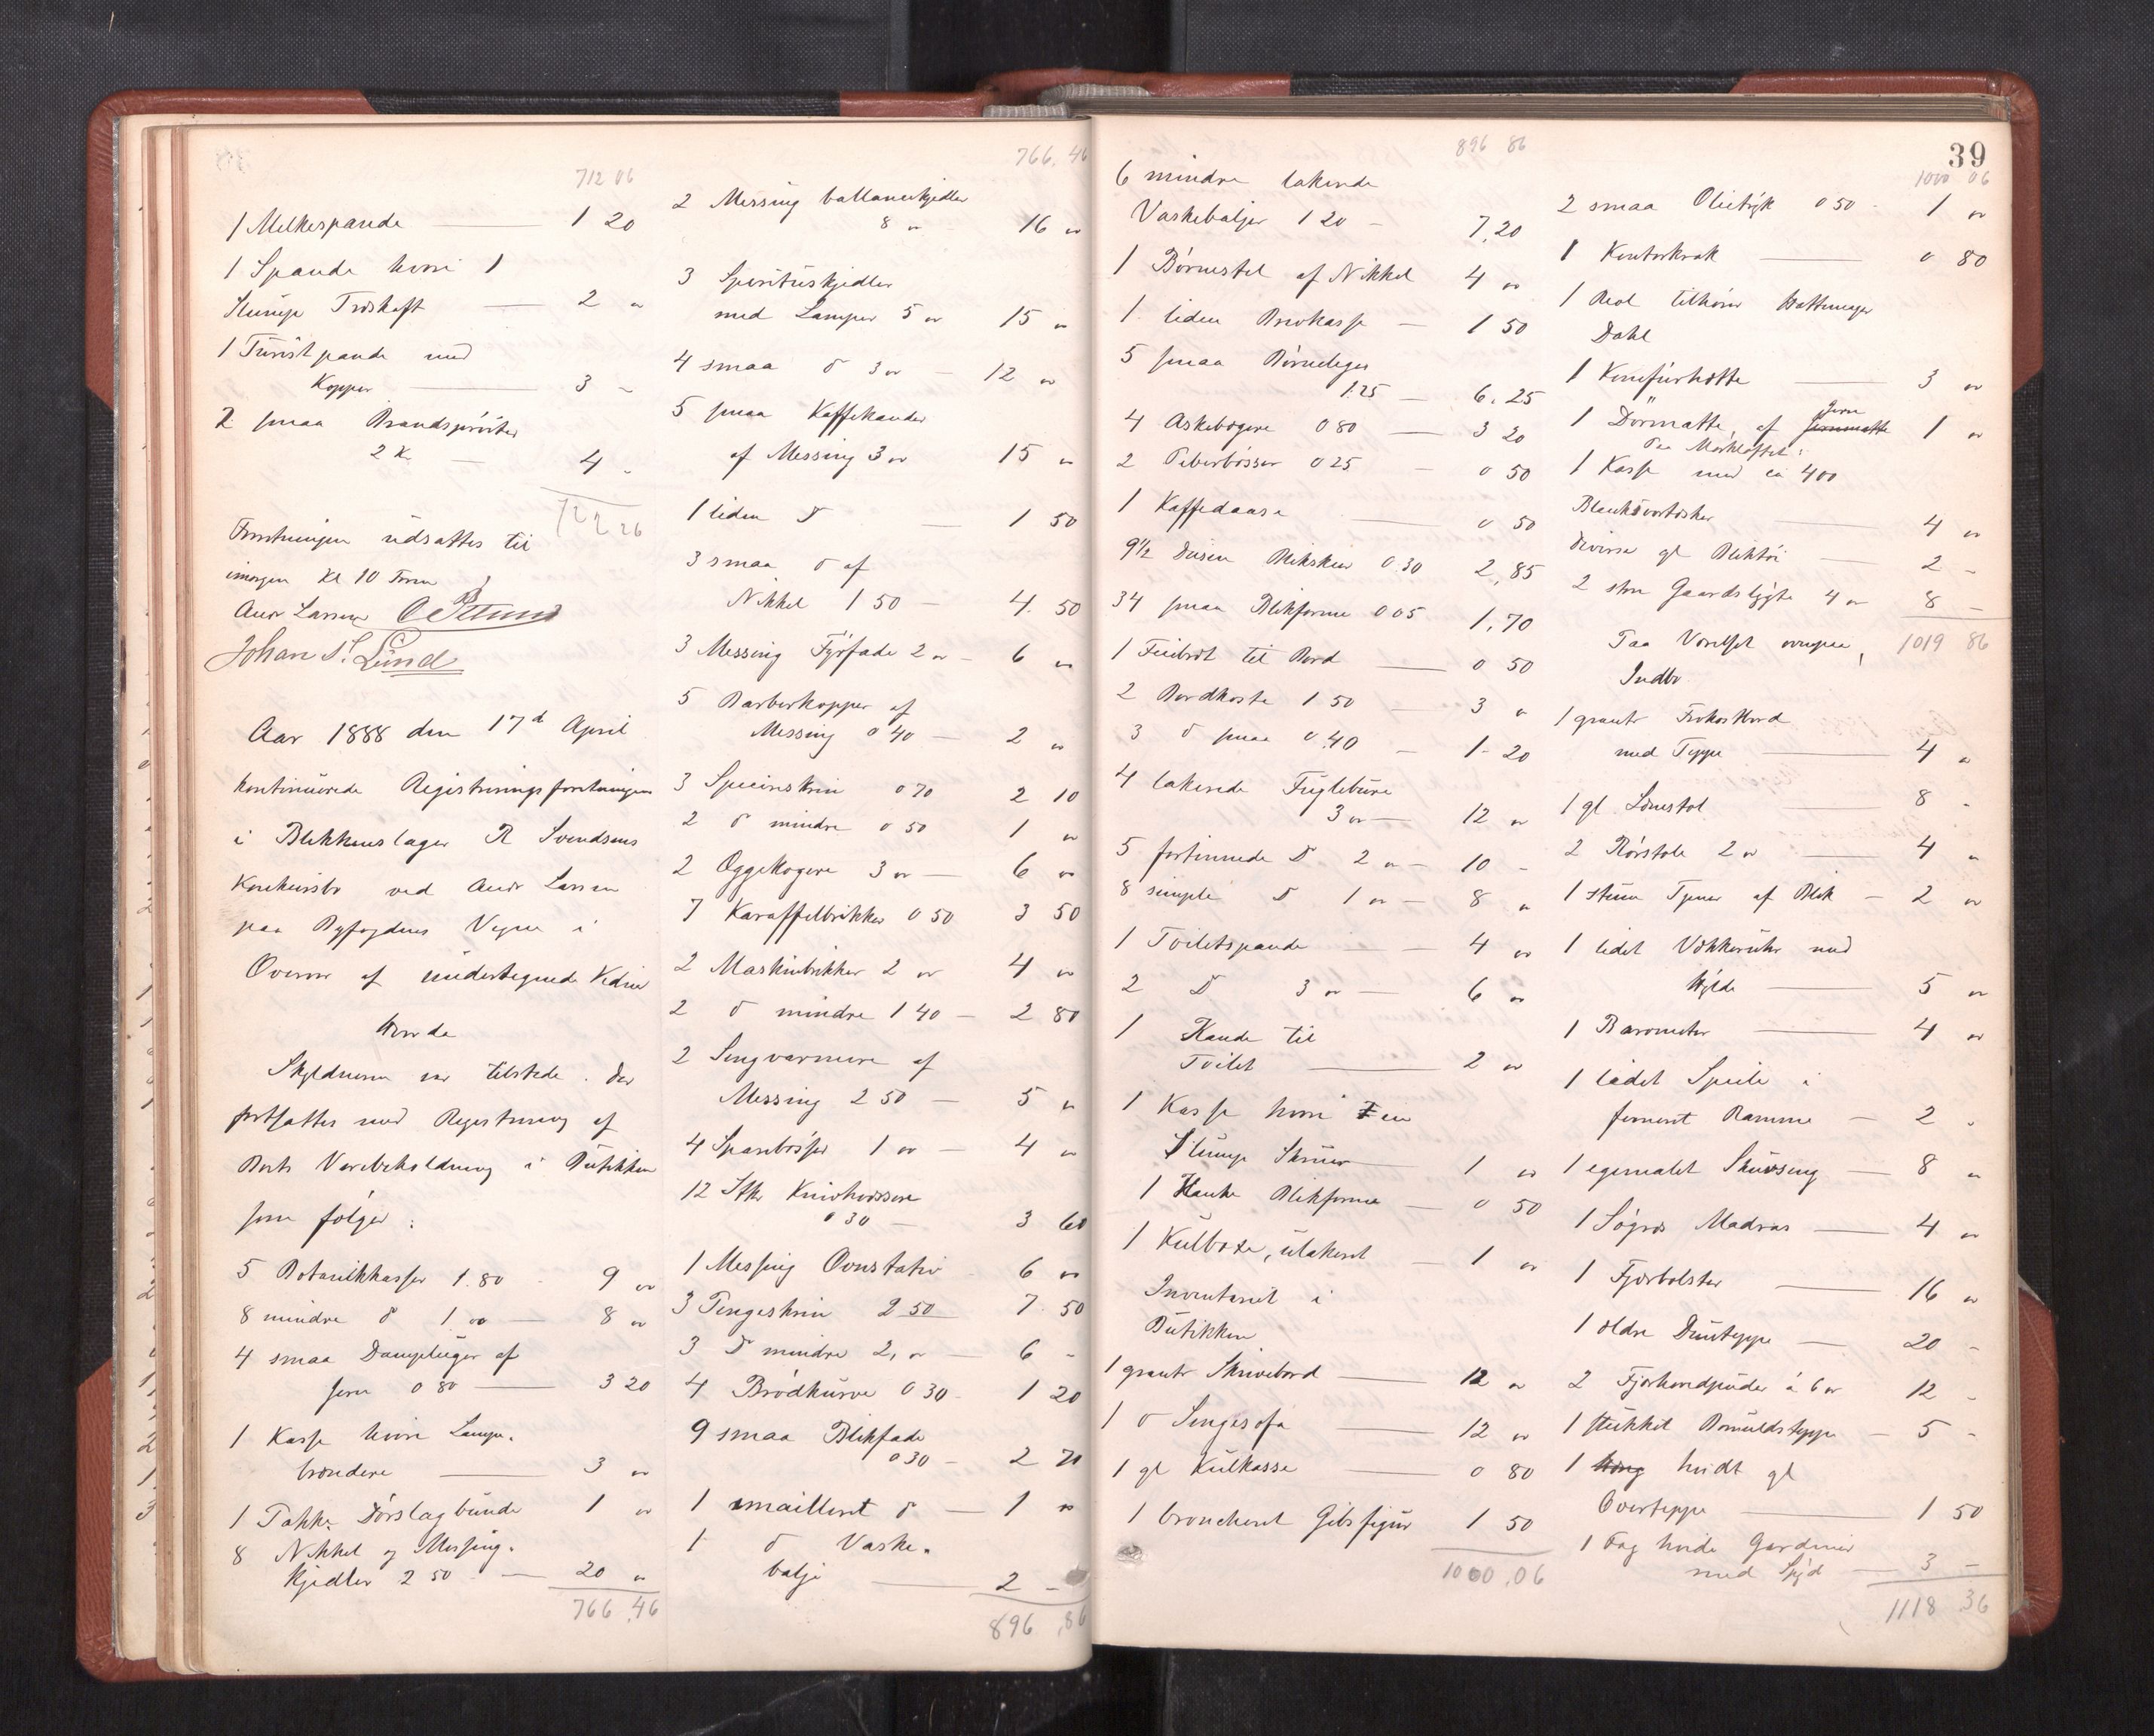 712 06
1 Melkespande 1 20
1 Spande hvori 1
Stump Træskaft 2 "
1 Turistpande med
Kopper 3 "
2 smaa Brandsprøiter
2 Kr. 4 "
722 26
Forretningen udsattes til
imorgen Kl 10 Form
Andr Larsen
Johan S. Lund
Aar 1888 den 17d April
kontinuerede Registreringsforretningen
i Blikkenslager R Svendsens
Konkursbo ved Andr Larsen
paa Byfogdens Vegne i
Overvær af undertegnede Vidner
Hvorda
Skyldneren var tilstede. Der
fortsattes med Registrering af
Boets Varebeholdning i Butikken
som følger:
5 Botanikkasser 1.80 9 "
8 mindre do 1 00 8 "
4 smaa Dampluger af
Jern 0 80 3 20
1 Kasse hvori Lampe-
brændere 3 "
1 Pakke Dørslagbunde 1 "
8 Nikkel og Messing-
kjedler 2 50 20 "
766.46
766.46
2 Messing ballanerkjedler
8 " 16 "
3 Sperituskjedler
med Lamper 5 " 15 "
4 smaa do 3 " 12 "
5 smaa Kaffekander
af Messing 3 " 15 "
1 liden do 1 50
3 smaa do af
Nikkel 1 50 4.50
3 Messing Fyrfade 2 " 6 "
5 Barberkopper af
Messing 0 40 2 "
3 Specieskrin 0 70 2 10
2 do mindre 0 50 1 "
2 Æggekogere 3 " 6 "
7 Karaffelbrikker 0 50 3 50
2 Maskinbrikker 2 " 4 "
2 do mindre 1 40 2 80
2 Sengvarmere af
Messing 2 50 5 "
4 Sparebøsser 1 " 4 "
12 Stk Knivhvæssere
0 30 3 60
1 Messing Ovnstativ 6 "
3 Pengeskrin 2 50 7.50
3 do mindre 2, " 6 -
4 Brødkurve 0 30 1 20
9 smaa Blikfade
0 30 2 70
1 emailleret do 1 "
1 do Vaske-
balje 2 -
896,86
896 86
6 mindre lakerede
Vaskebaljer 1 20 7,20
1 Børnestel af Nikkel 4 "
1 liden Brevkasse 1 50
5 smaa Børneleger
1.25 6.25
4 Askebægere 0 80 3 20
2 Peberbøsser 0 25 0 50
1 Kaffedaase 0 50
9½ Dusin Blikskeer 0 30 2,85
34 smaa Blikforme 0 05 1,70
1 Feiebræt til Bord 0 50
2 Bordkoste 1 50 3 "
3 do smaa 0.40 1-20
4 lakerede Fuglebure
3 " 12 "
5 fortinnede do 2 " 10 -
8 simple do 1 " 8 "
1 Toiletspande 4 "
2 do 3 " 6 "
1 Kande til
Toilet 2 "
1 Kasse hvori en
Slump Skruer 1 "
1 Hanke Blikforme 0 50
1 Kulboxe, ulakeret 1 "
Inventariet i
Butikken
1 grantr Skrivebord 12 "
1 do Sengesofa 12 "
1 gl Kulkasse 0 80
1 bronceret Gibsfigur 1 50
1000.06
39
1000 06
2 smaa Olietryk 0 50 1 "
1 Kontorkrak 0 80
1 Reol tilhører Hattemager
Dahl
1 Komfurhætte 3 "
1 Dörmatte, af Jern 1 "
Paa Mørkloftet:
1 Kasse med ca 400
Blanksværtæsker 4 "
Diverse gl Bliktøi 2 -
2 store Gaardslygte 4 " 8 -
1019 86
Paa Værelset ovenpaa,
Indbo
1 grantr Frokostbord
med Teppe 4 "
1 gl Lænestol 8 -
2 Rørstole 2 " 4 "
1 stuen Tjener af Blik 2 "
1 lidet Vækkeruhr med
Hylde 5 "
1 Barometer 4 "
1 lidet Speile i
ferneret Ramme 2 -
1 egemalet Skuvseng 8 "
1 Søgræs Madras 4 "
1 Fjærbolster 16 "
1 ældre Dunteppe 20 -
2 Fjærhovedpuder à 6 " 12 -
1 stukket Bomuldsteppe 5 -
1 hvidt gl
Overteppe 1 50
1 Fag hvide Gardiner
med Spyd 3 -
1118 36